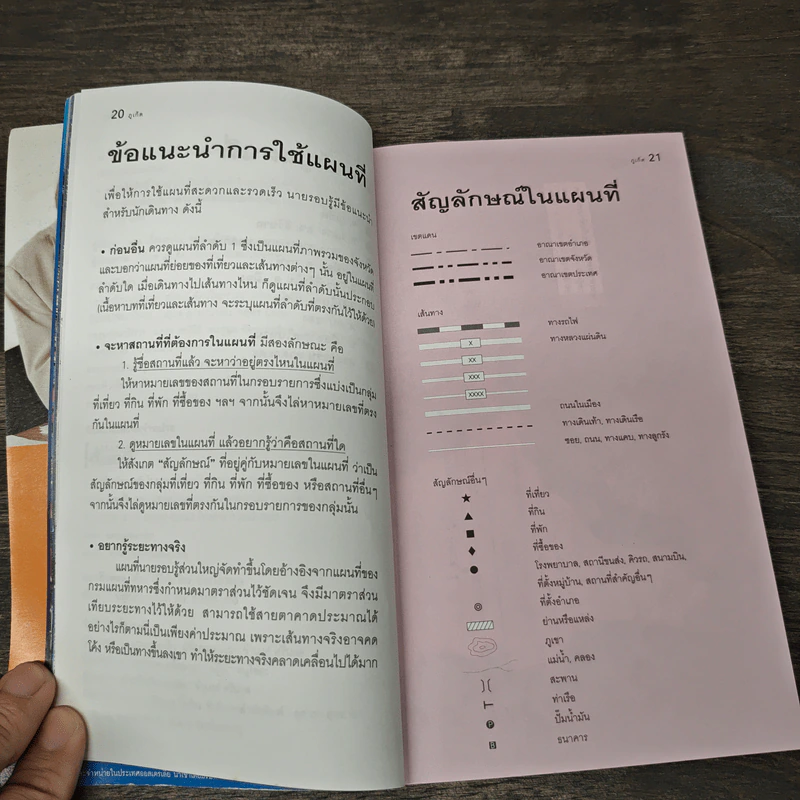 20 ภูเก็ต
ข้อแนะนำการใช้แผนที่
เพื่อให้การใช้แผนที่สะดวกและรวดเร็ว นายรอบรู้มีข้อแนะนำ
สำหรับนักเดินทาง ดังนี้
• ก่อนอื่น ควรดูแผนที่ลำดับ 1 ซึ่งเป็นแผนที่ภาพรวมของจังหวัด
และบอกว่าแผนที่ย่อยของที่เที่ยวและเส้นทางต่างๆ นั้น อยู่ในแผนที่
ลำดับใด เมื่อเดินทางไปเส้นทางไหน ก็ดูแผนที่ลำดับนั้นประกอบ
(เนื้อหาบทที่เที่ยวและเส้นทาง จะระบุแผนที่ลำดับที่ตรงกันไว้ให้ด้วย)
• จะหาสถานที่ที่ต้องการในแผนที่ มีสองลักษณะ คือ
1. รู้ชื่อสถานที่แล้ว จะหาว่าอยู่ตรงไหนในแผนที่
ให้หาหมายเลขของสถานที่ในกรอบรายการซึ่งแบ่งเป็นกลุ่ม
ที่เที่ยว ที่กิน ที่พัก ที่ซื้อของ ฯลฯ จากนั้นจึงไล่หาหมายเลขที่ตรง
กันในแผนที่
2. ดูหมายเลขในแผนที่ แล้วอยากรู้ว่าคือสถานที่ใด
ให้สังเกต “สัญลักษณ์” ที่อยู่คู่กับหมายเลขในแผนที่ ว่าเป็น
สัญลักษณ์ของกลุ่มที่เที่ยว ที่กิน ที่พัก ที่ซื้อของ หรือสถานที่อื่นๆ
จากนั้นจึงไล่ดูหมายเลขที่ตรงกันในกรอบรายการของกลุ่มนั้น
• อยากรู้ระยะทางจริง
แผนที่นายรอบรู้ส่วนใหญ่จัดทำขึ้นโดยอ้างอิงจากแผนที่ของ
กรมแผนที่ทหารซึ่งกำหนดมาตราส่วนไว้ชัดเจน จึงมีมาตราส่วน
เทียบระยะทางไว้ให้ด้วย สามารถใช้สายตาคาดประมาณได้
อย่างไรก็ตามนี่เป็นเพียงค่าประมาณ เพราะเส้นทางจริงอาจคด
โค้ง หรือเป็นทางขึ้นลงเขา ทำให้ระยะทางจริงคลาดเคลื่อนไปได้มาก
ภูเก็ต 21
สัญลักษณ์ในแผนที่
เขตแดน
อาณาเขตอำเภอ
อาณาเขตจังหวัด
อาณาเขตประเทศ
เส้นทาง
ทางรถไฟ
X ทางหลวงแผ่นดิน
XX
XXX
XXXX
ถนนในเมือง
ทางเดินเท้า, ทางเดินเรือ
ซอย, ถนน, ทางแคบ, ทางลูกรัง
สัญลักษณ์อื่นๆ
★ ที่เที่ยว
▲ ที่กิน
■ ที่พัก
♦ ที่ซื้อของ
● โรงพยาบาล, สถานีขนส่ง, คิวรถ, สนามบิน,
ที่ตั้งหมู่บ้าน, สถานที่สำคัญอื่นๆ
◎ ที่ตั้งอำเภอ
ย่านหรือแหล่ง
ภูเขา
แม่น้ำ, คลอง
สะพาน
ท่าเรือ
P ปั๊มน้ำมัน
B ธนาคาร